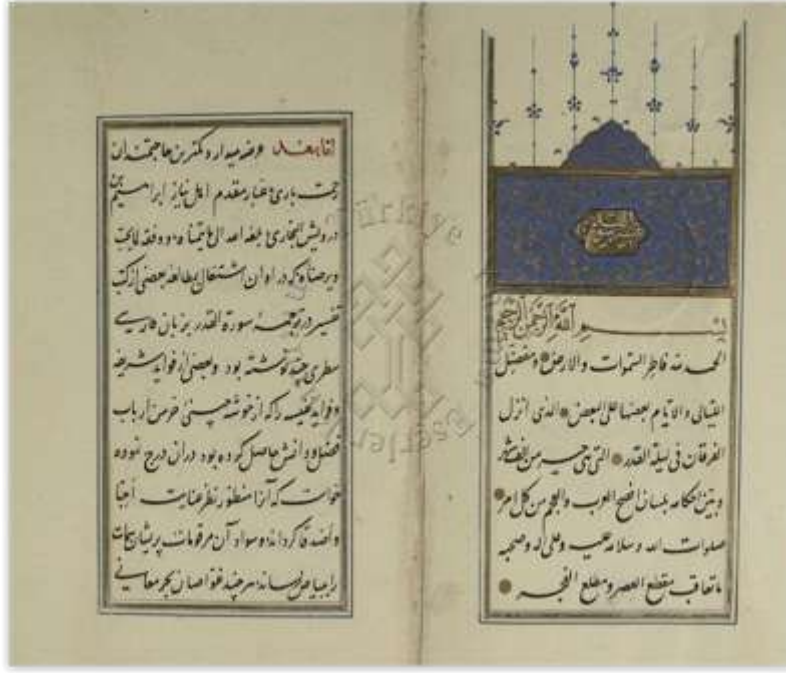 بسم الله الرحمن الرحيم
الحمد لله فاطر السموات والارض ومفضل
الليالى والايام بعضها على البعض الذى انزل
الفرقان فى ليلة القدر التى هى خير من الف شهر
وبين احكامه بلسان افصح العرب والعجم من كل امر
صلوات الله وسلامه عليه وعلى اله وصحبه
ماتعاقب مقطع العصر ومطلع الفجر
اما بعد عرضه میدارد کمترین حاجتمندان
رحمت باری و غبار مقدم اهل نیاز ابراهیم بن
درویش البخاری بلغه الله الی مایتمناه ووفقه لما یحب
ویرضاه که در اوان اشتغال بمطالعه بعضی از کتب
تفسیر در ترجمهٔ سورة القدر بزبان فارسی
سطری چند نوشته بود و بعضی از فواید شریفه
و فراید نفیسه را که از خوشه چینی خرمن ارباب
فضل و دانش حاصل کرده بود دران درج نموده
خواست که آنرا منظور نظر عنایت احبا
واصدقا گرداند و سواد آن مرقومات پریشان
را به بیاض رساند هر چند غواصان بحر معانی
Türkiye
Eserler